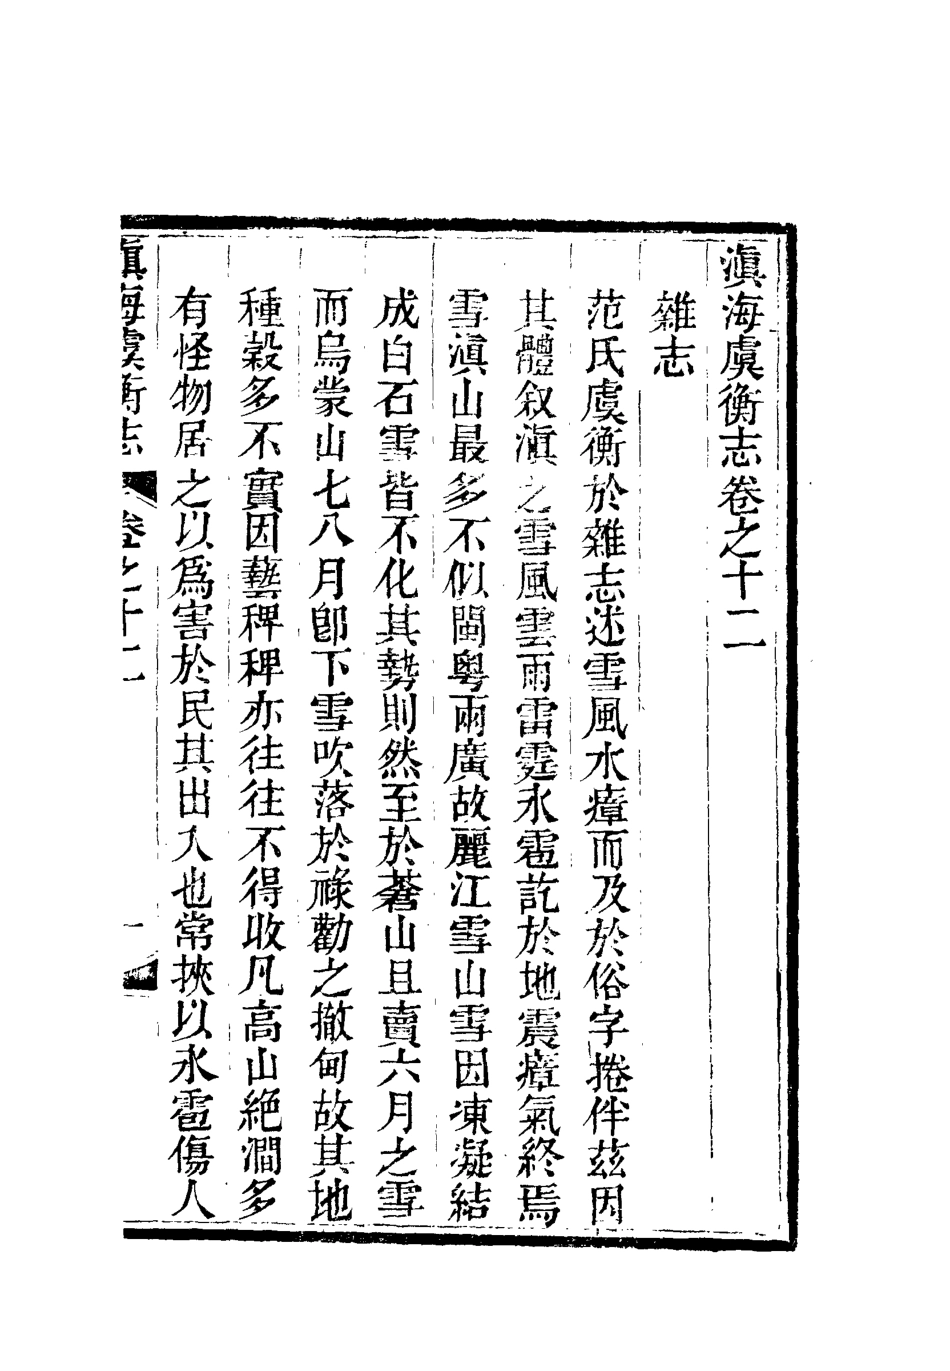 滇海虞衡志卷之十二
雜志
范氏虞衡於雜志述雪風水瘴而及於俗字捲伴茲因
其體叙滇之雪風雲雨雷霆氷雹訖於地震瘴氣終焉
雪滇山最多不似閩粤兩廣故麗江雪山雪因凍凝結
成白石雪皆不化其勢則然至於蒼山且賣六月之雪
而烏蒙山七八月卽下雪吹落於祿勸之撤甸故其地
種穀多不實因藝稗稗亦往往不得收凡高山絕澗多
有怪物居之以爲害於民其出入也常挾以氷雹傷人
滇海虞衡志 卷之十二 一